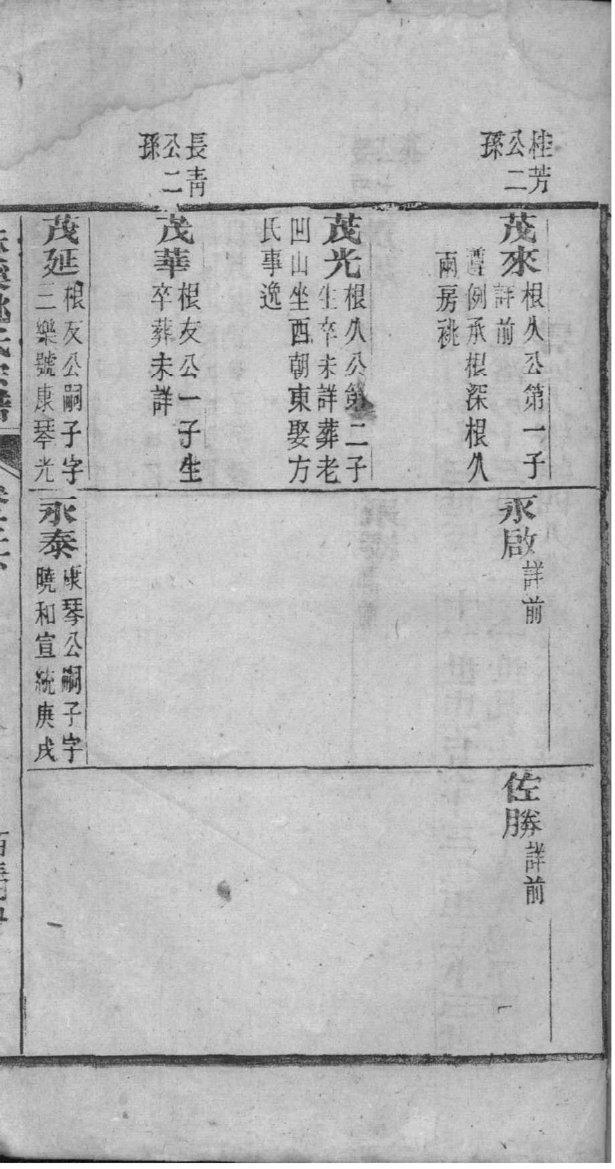 桂芳
公二
孫
茂來
根久公第一子
詳前
遵例承根深根久
兩房祧
永啟
詳前
佐勝
詳前
茂光
根久公第二子
生卒未詳葬老
凹山坐西朝東娶方
氏事逸
長青
公二
孫
茂華
根友公一子生
卒葬未詳
茂延
根友公嗣子字
三樂號康琴光
永泰
康琴公嗣子字
曉和宣統庚戌